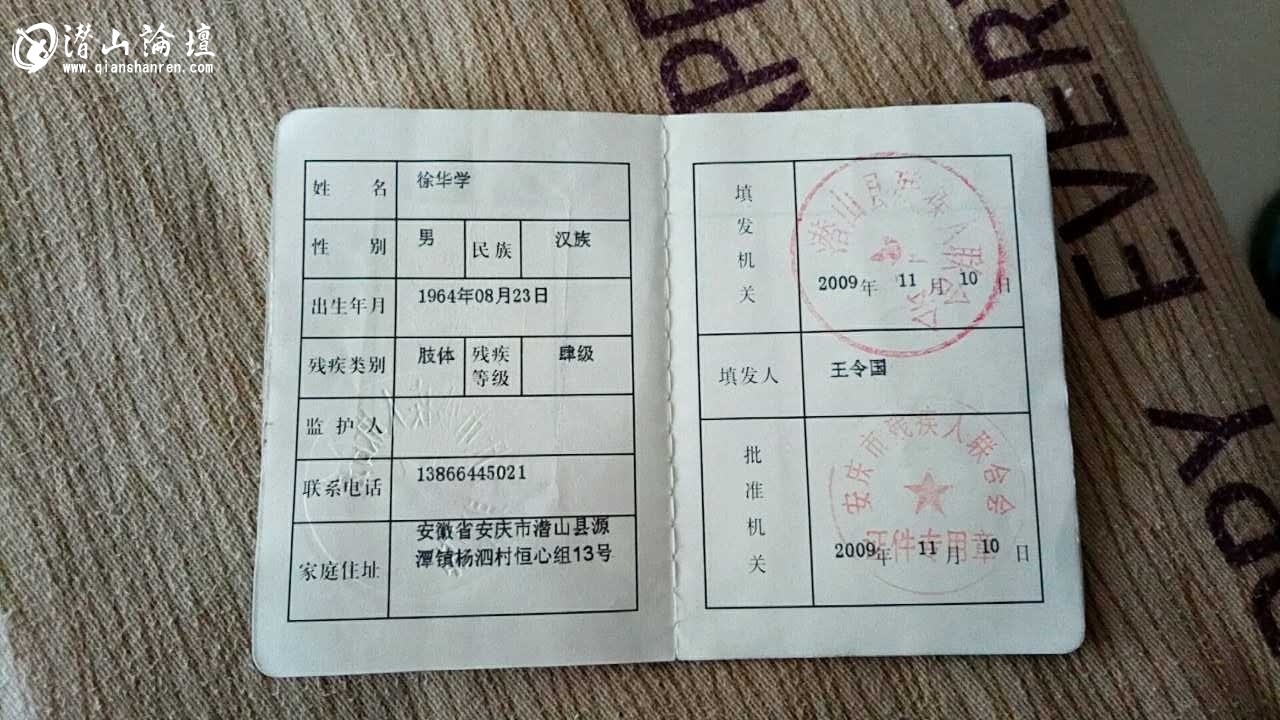 潜山論壇
www.qianshanren.com
姓 名 徐华学
性 别 男 民族 汉族
出生年月 1964年08月23日
残疾类别 肢体 残疾等级 肆级
监护人
联系电话 13866445021
家庭住址 安徽省安庆市潜山县源
潭镇杨泗村恒心组13号
填发机关
潜山县残疾人联合会
2009年 11月 10日
填发人 王令国
批准机关
安庆市残疾人联合会
证件专用章
2009年 11月 10日
EVER